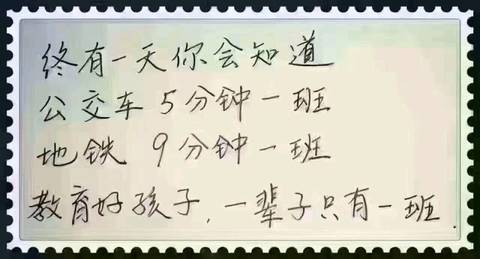 终有一天你会知道
公交车5分钟一班
地铁 9分钟一班
教育好孩子,一辈子只有一班.